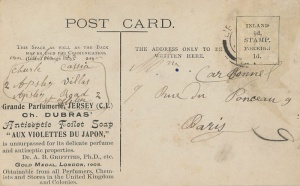 POST CARD.
THIS SPACE AS WELL AS THE BACK
MAY BE USED FOR COMMUNICATION.
THE ADDRESS ONLY TO BE
WRITTEN HERE.
INLAND
½d.
STAMP.
FOREIGN
1d.
Car Connel
7 Rue du Ponceau 9
Paris
2 Apsley Villas
Apsley Road
Grande Parfumerie, JERSEY (C.I.)
CH. DUBRAS'
Antiseptic Toilet Soap
"AUX VIOLETTES DU JAPON,"
is unsurpassed for its delicate perfume
and antiseptic properties.
Dr. A. B. GRIFFITHS, Ph.D., etc.
GOLD MEDAL LONDON, 1902.
Obtainable from all Perfumers, Chem-
ists and Stores in the United Kingdom
and Colonies.